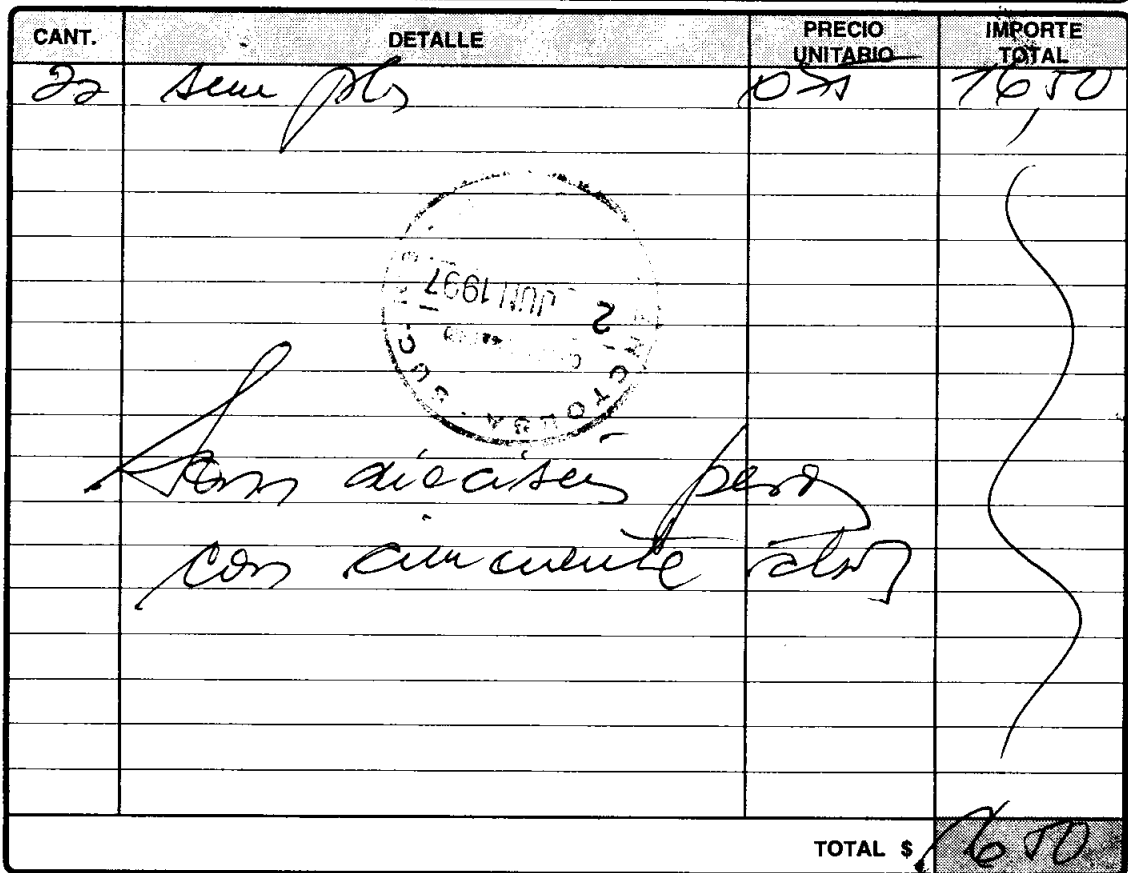 CANT. DETALLE PRECIO UNITARIO IMPORTE TOTAL
22 0,75 16,50
2 JUN 1997
Son dieciseis pesos
con cincuenta ctvos
TOTAL $ 16,50